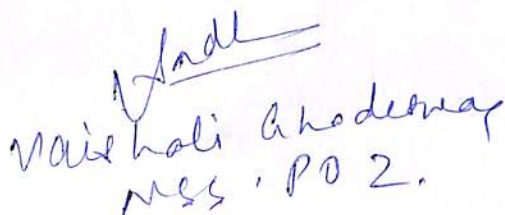 Vaishali Ghodeswar
NSS . PO 2.